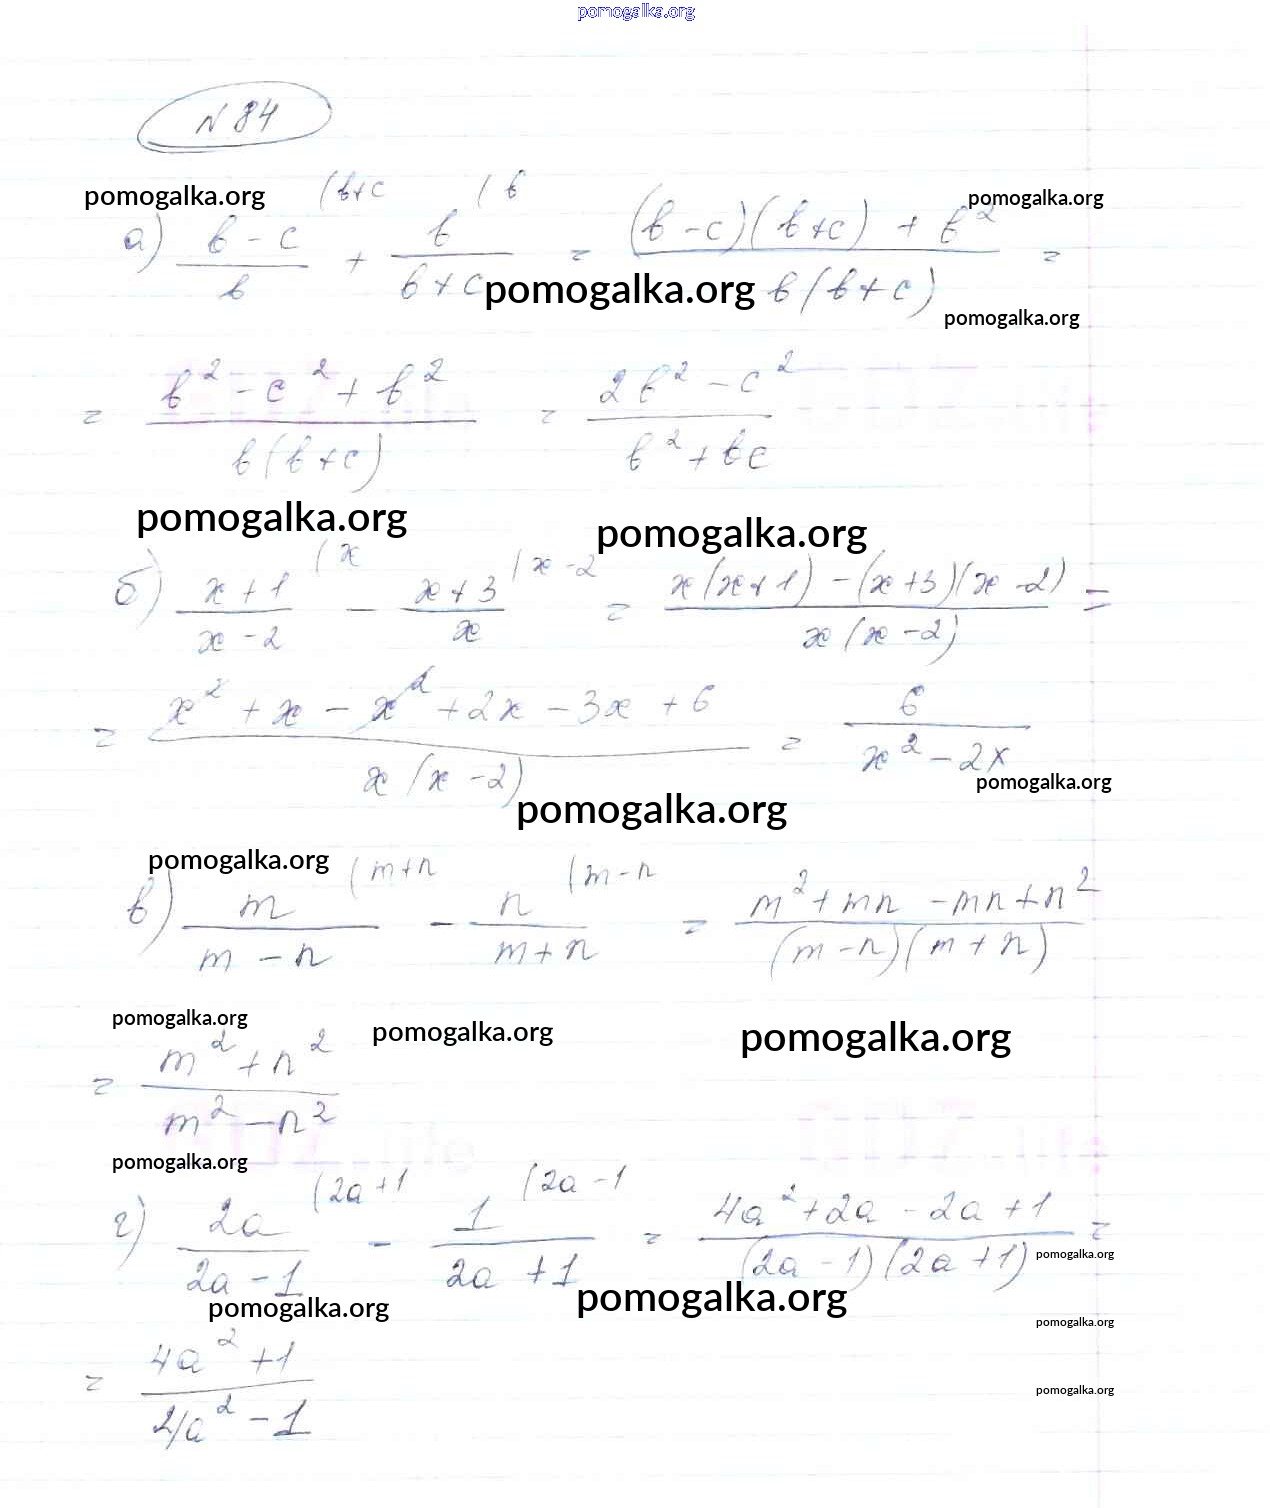 pomogalka.org
N 84
pomogalka.org (b+c ( b pomogalka.org
а) (b - c)/b + b/(b + c) = ((b - c)(b + c) + b²)/(b(b + c)) =
pomogalka.org
pomogalka.org
= (b² - c² + b²)/(b(b + c)) = (2b² - c²)/(b² + bc)
pomogalka.org pomogalka.org
(x (x - 2
б) (x + 1)/(x - 2) - (x + 3)/x = (x(x + 1) - (x + 3)(x - 2))/(x(x - 2)) =
= (x² + x - x² + 2x - 3x + 6)/(x(x - 2)) = 6/(x² - 2x)
pomogalka.org
pomogalka.org
pomogalka.org (m+n (m - n
в) m/(m - n) - n/(m + n) = (m² + mn - mn + n²)/((m - n)(m + n))
pomogalka.org pomogalka.org pomogalka.org
= (m² + n²)/(m² - n²)
pomogalka.org (2a + 1 (2a - 1
г) 2a/(2a - 1) - 1/(2a + 1) = (4a² + 2a - 2a + 1)/((2a - 1)(2a + 1)) =
pomogalka.org
pomogalka.org pomogalka.org
pomogalka.org
= (4a² + 1)/(4a² - 1)
pomogalka.org